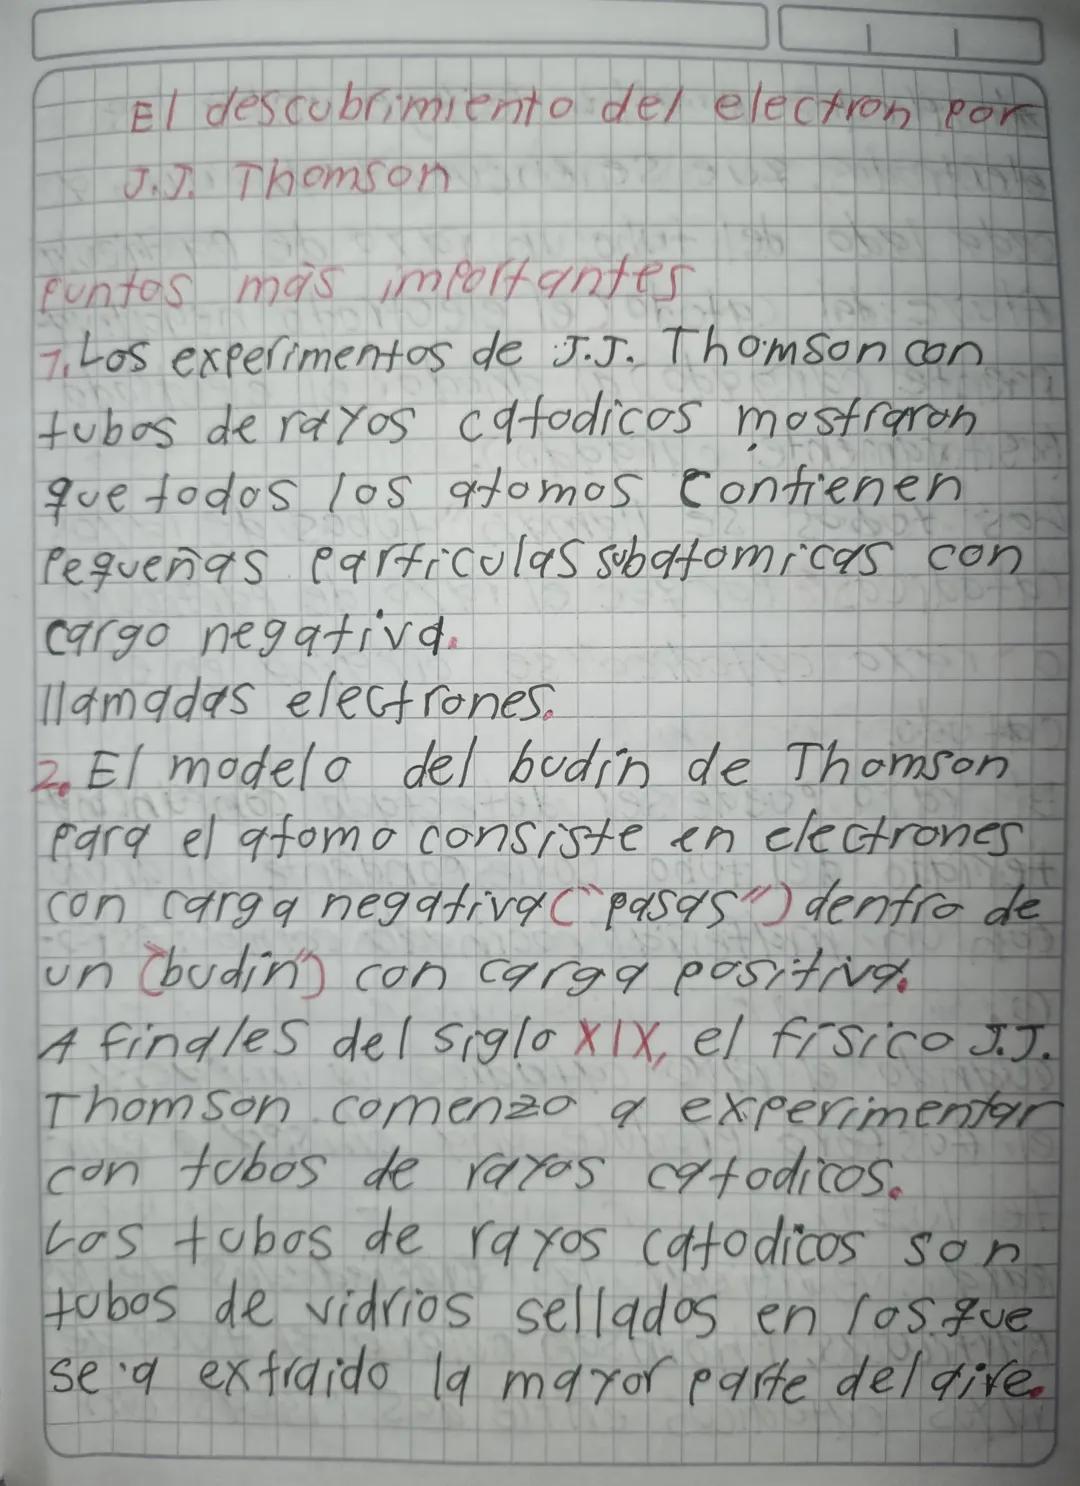 El descubrimiento del electron por
J.J. Thomson
puntos más importantes
1. Los experimentos de J.J. Thomson con
tubos de rayos catodicos mostraron
que todos los atomos contienen
pequeñas particulas subatomicas con
cargo negativa.
llamadas electrones.
2. El modelo del budin de Thomson
para el atomo consiste en electrones
con carga negativa ("pasas") dentro de
un ("budin") con carga positiva.
A finales del siglo XIX, el físico J.J.
Thomson comenzo a experimentar
con tubos de rayos catodicos.
Los tubos de rayos catodicos son
tubos de vidrios sellados en los que
se a extraido la mayor parte del aire.